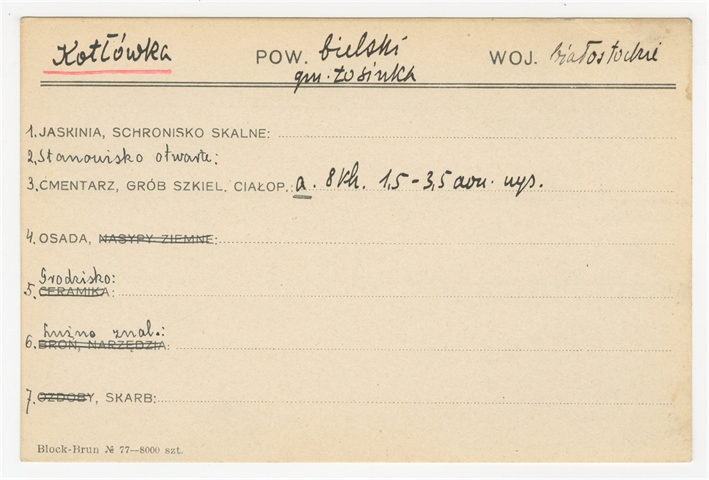 Kotłówka POW. bielski WOJ. białostockie
gm. Łosinka
1. JASKINIA, SCHRONISKO SKALNE:
2. Stanowisko otwarte:
3. CMENTARZ, GRÓB SZKIEL. CIAŁOP.: a. 8 Kh. 1,5-3,5 wys.
4. OSADA, NASYPY ZIEMNE:
Grodzisko:
5. CERAMIKA:
Luźno znal.:
6. BROŃ, NARZĘDZIA:
7. OZDOBY, SKARB:
Block-Brun № 77—8000 szt.